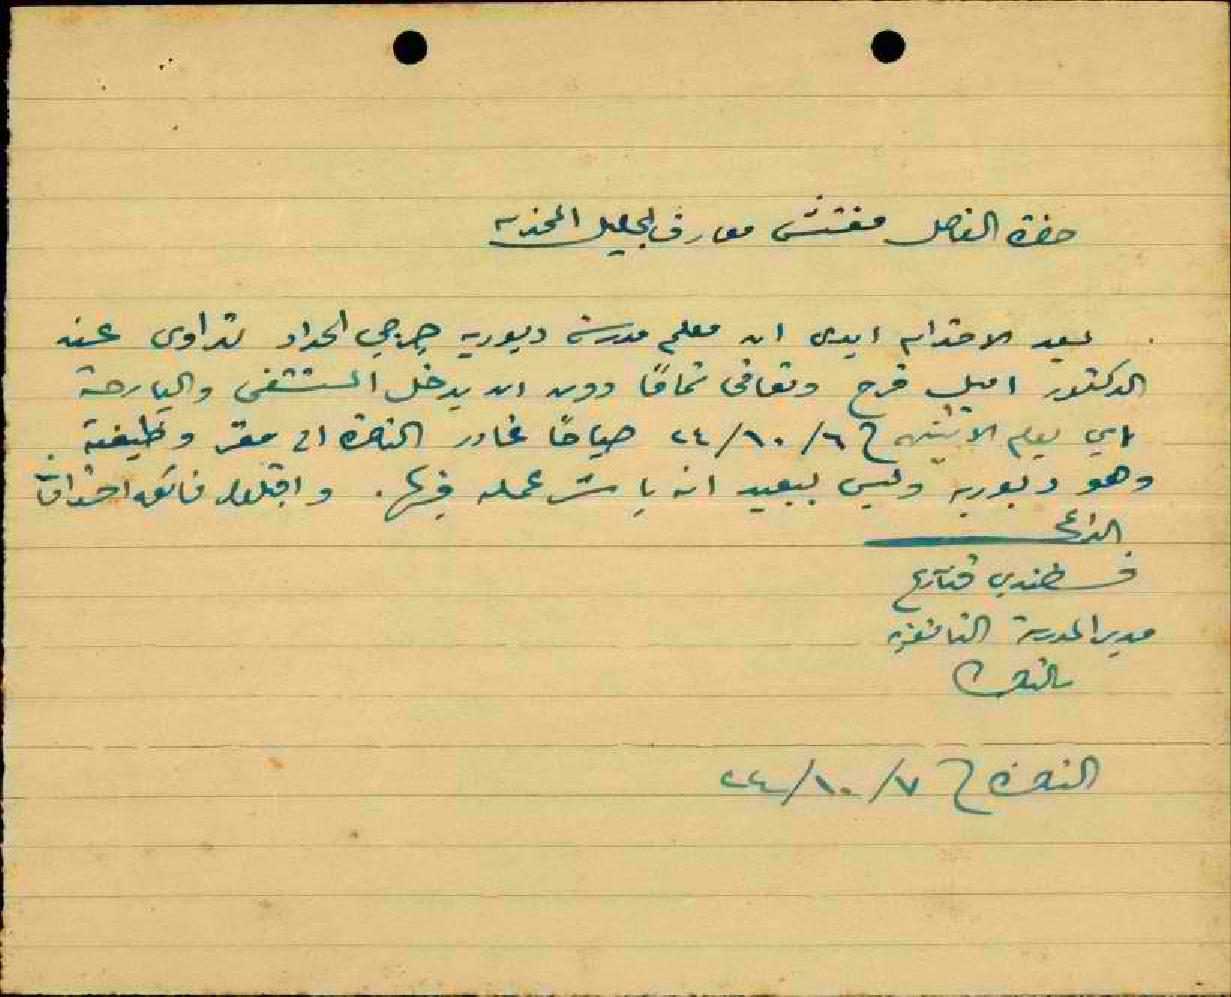 حضرة الفاضل مفتش معارف الجليل المحترم
بعد الاحترام ابدي ان معلم مدرسة دبورية جرجي الحداد تداوى عند
الدكتور اميل فرح وتعافى تمامًا دون ان يدخل المستشفى والبارحة
اي يوم الاثنين في ٢٤/١٠/٦ صباحًا غادر الناصرة الى مقر وظيفته
وهو دبورية وليس ببعيد انه باشر عمله فيها. واقبلوا فائق احترامي
الداعي
قسطندي قنازع
مدير المدرسة الثانوية
بالناصرة
الناصرة في ٢٤/١٠/٧